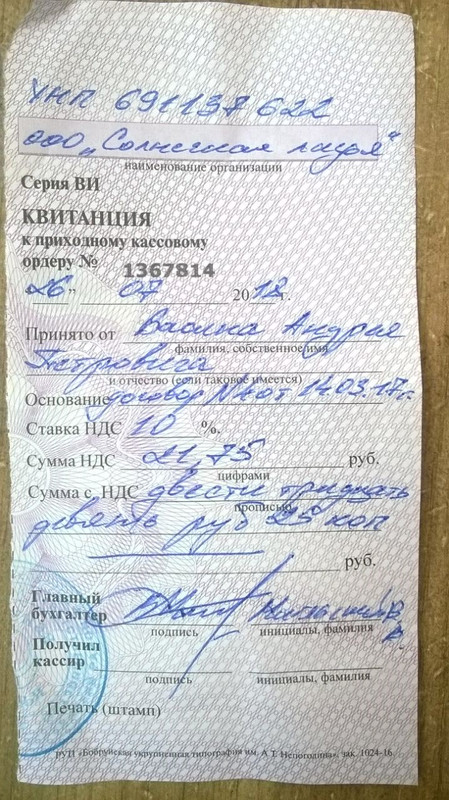 УНП 691137622
ООО „Солнечная лазья"
наименование организации
Серия ВИ
КВИТАНЦИЯ
к приходному кассовому
ордеру № 1367814
26" 07 2018г.
Принято от Васина Андрея
фамилия, собственное имя
Петровича
и отчество (если таковое имеется)
Основание договор № от 14.03.17г.
Ставка НДС 10 %.
Сумма НДС 21,75 руб.
цифрами
Сумма с НДС двести тридцать
прописью
девять руб 25 коп
руб.
Главный
бухгалтер
подпись инициалы, фамилия
Получил
кассир
подпись инициалы, фамилия
Печать (штамп)
РУП «Бобруйская укрупненная типография им. А.Т. Непогодина», зак. 1024-16